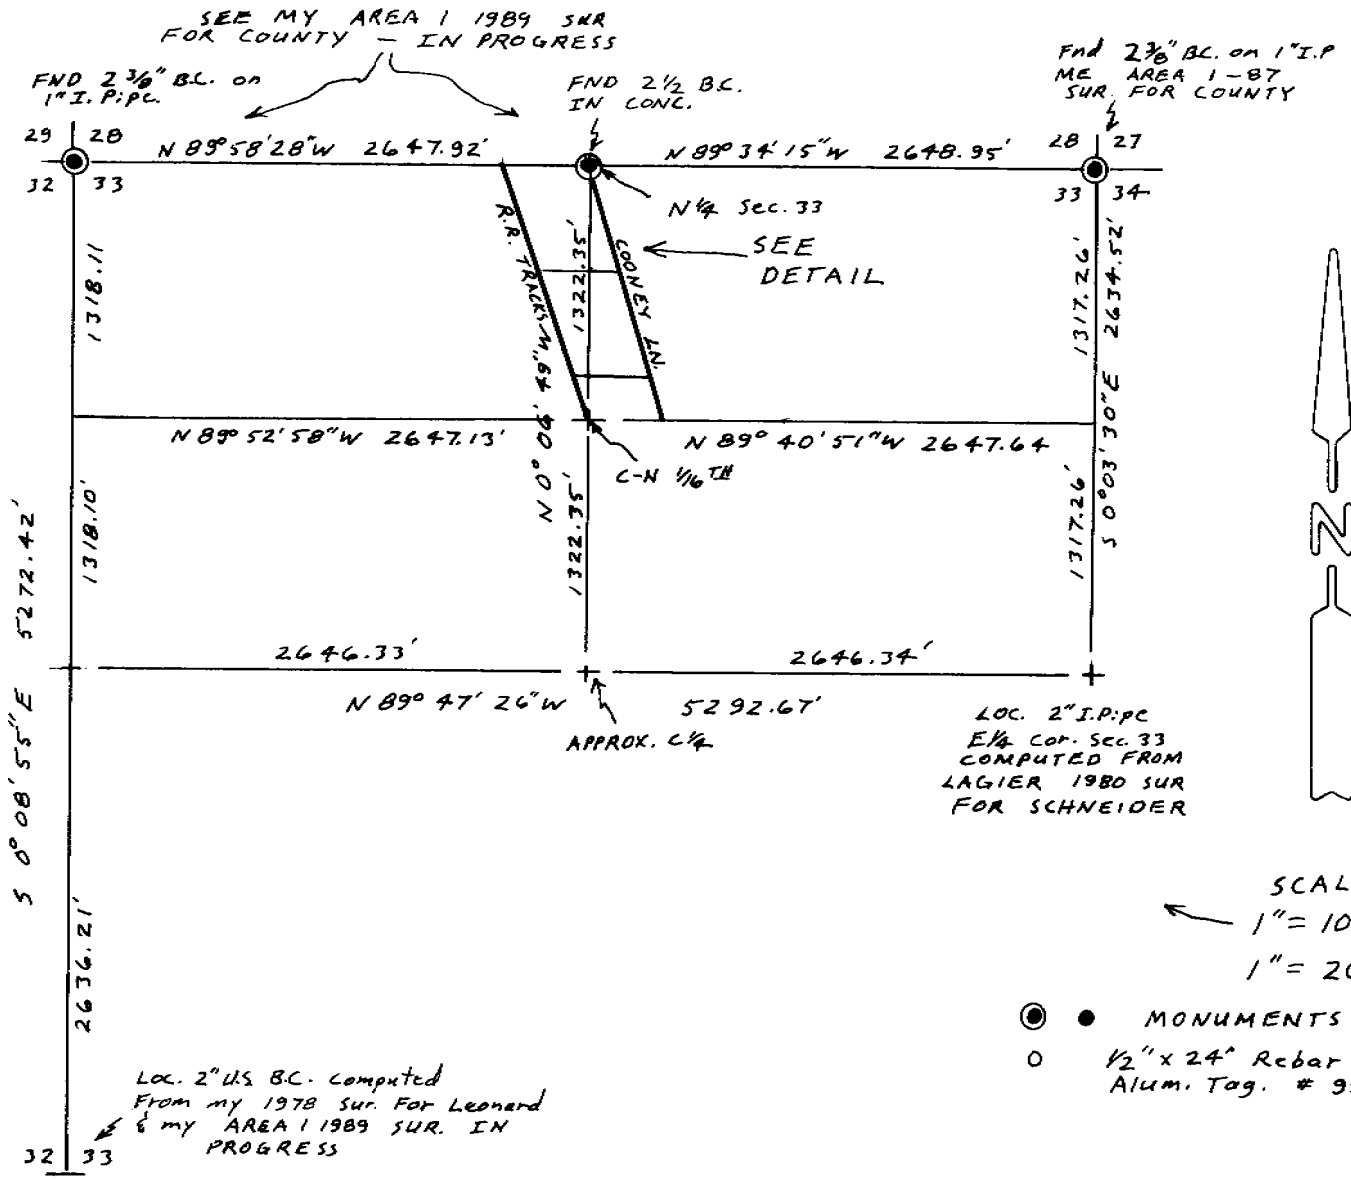 SEE MY AREA 1 1989 SUR
FOR COUNTY — IN PROGRESS
FND 2 3/8" B.C. on
1" I. Pipe.
FND 2 1/2 B.C.
IN CONC.
Fnd 2 3/8" B.C. on 1" I.P
ME AREA 1-87
SUR. FOR COUNTY
29 28
32 33
N 89° 58' 28" W 2647.92'
N 89° 34' 15" W 2648.95'
28 27
33 34
N 1/4 Sec. 33
SEE
DETAIL
R.R. TRACKS
COONEY LN.
1318.11
1322.35'
N 0° 06' 49" W
1317.26'
S 0° 03' 30" E 2634.52'
N 89° 52' 58" W 2647.13'
N 89° 40' 51" W 2647.64
C-N 1/16 TH
1318.10'
1322.35'
1317.26'
N
S 0° 08' 55" E 5272.42'
2646.33'
2646.34'
N 89° 47' 26" W 5292.67'
APPROX. C 1/4
LOC. 2" I.Pipe
E 1/4 Cor. Sec. 33
COMPUTED FROM
LAGIER 1980 SUR
FOR SCHNEIDER
2636.21'
SCAL
1" = 10
1" = 20
MONUMENTS
1/2" x 24" Rebar
Alum. Tag. # 9
Loc. 2" U.S. B.C. Computed
From my 1978 Sur. For Leonard
& my AREA 1 1989 SUR. IN
PROGRESS
32 33